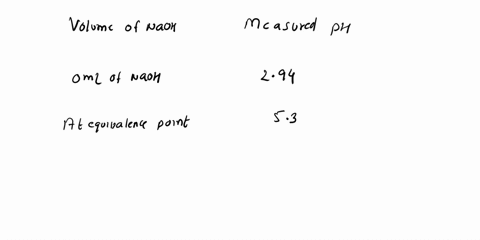 Volume of NaOH Measured pH
0mL of NaOH 2.94
At equivalence point 5.3